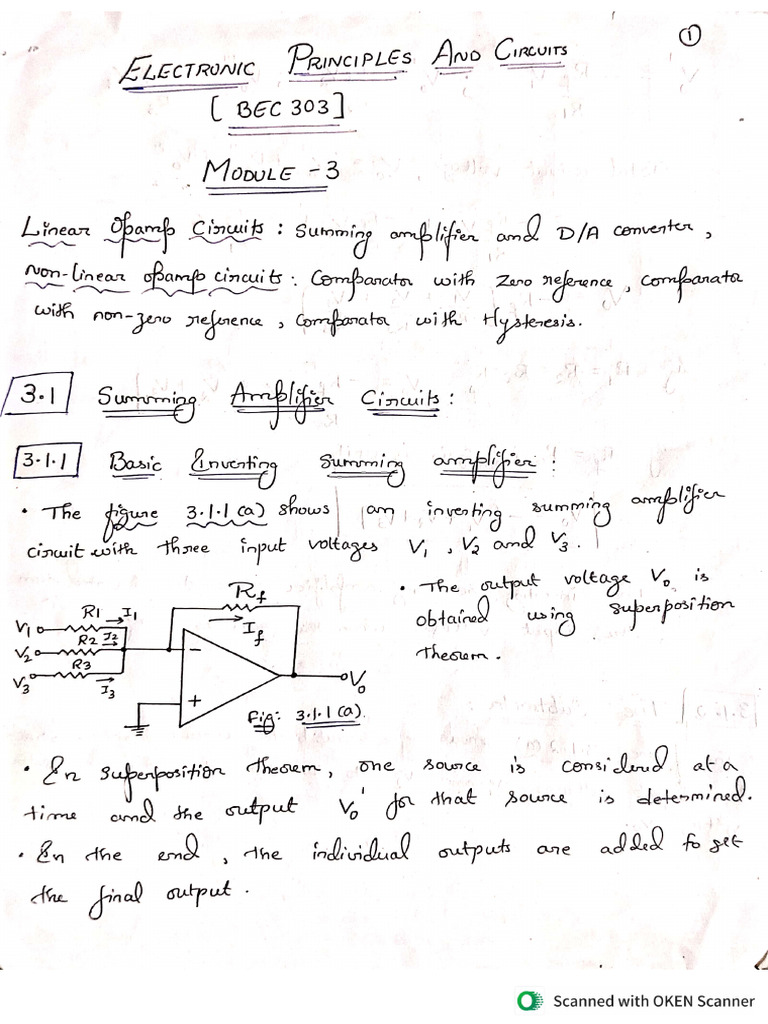 1
ELECTRONIC PRINCIPLES AND CIRCUITS
[ BEC 303 ]
MODULE - 3
Linear Opamp Circuits : Summing amplifier and D/A converter ,
Non-linear opamp circuits : Comparator with zero reference , comparator
with non-zero reference , Comparator with Hysteresis.
3.1 Summing Amplifier Circuits :
3.1.1 Basic Inverting Summing amplifier :
• The figure 3.1.1 (a) shows an inverting summing amplifier
circuit with three input voltages V1 , V2 and V3 .
• The output voltage Vo is
obtained using superposition
theorem .
Rf
R1 I1
V1
If
R2 I2
V2
R3
V3
I3
−
+
Vo
Fig: 3.1.1 (a)
• In superposition theorem , one source is considered at a
time and the output Vo' for that source is determined.
• In the end , the individual outputs are added to get
the final output .
Scanned with OKEN Scanner